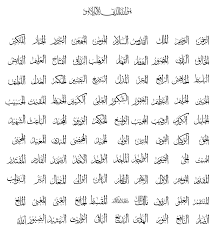 هو الله الذي لا إله إلا هو
الرحمن الرحيم الملك القدوس السلام المؤمن المهيمن العزيز الجبار المتكبر
الخالق البارئ المصور الغفار القهار الوهاب الرزاق الفتاح العليم القابض
الباسط الخافض الرافع المعز المذل السميع البصير الحكم العدل اللطيف
الخبير الحليم العظيم الغفور الشكور العلي الكبير الحفيظ المقيت الحسيب
الجليل الكريم الرقيب المجيب الواسع الحكيم الودود المجيد الباعث الشهيد
الحق الوكيل القوي المتين الولي الحميد المحصي المبدئ المعيد المحيي
المميت الحي القيوم الواجد الماجد الواحد الصمد القادر المقتدر
المقدم المؤخر الأول الآخر الظاهر الباطن الوالي المتعالي البر التواب
المنتقم العفو الرؤوف مالك الملك المقسط الجامع الغني المغني المانع
الضار النافع النور الهادي البديع الباقي الوارث الرشيد الصبور